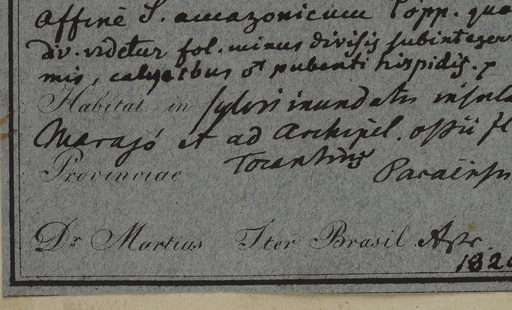 affine S. amazonicum Popp. quo
div. videtur fol. minus divisis subinteger
mis, calycibus et pubenti hispidis.
Habitat in sylvis inundatis insula
Marajó et ad Archipel. ostii fl
Tocantins
Provinciae Paraensis
Dr. Martius Iter Brasil. Apr.
182